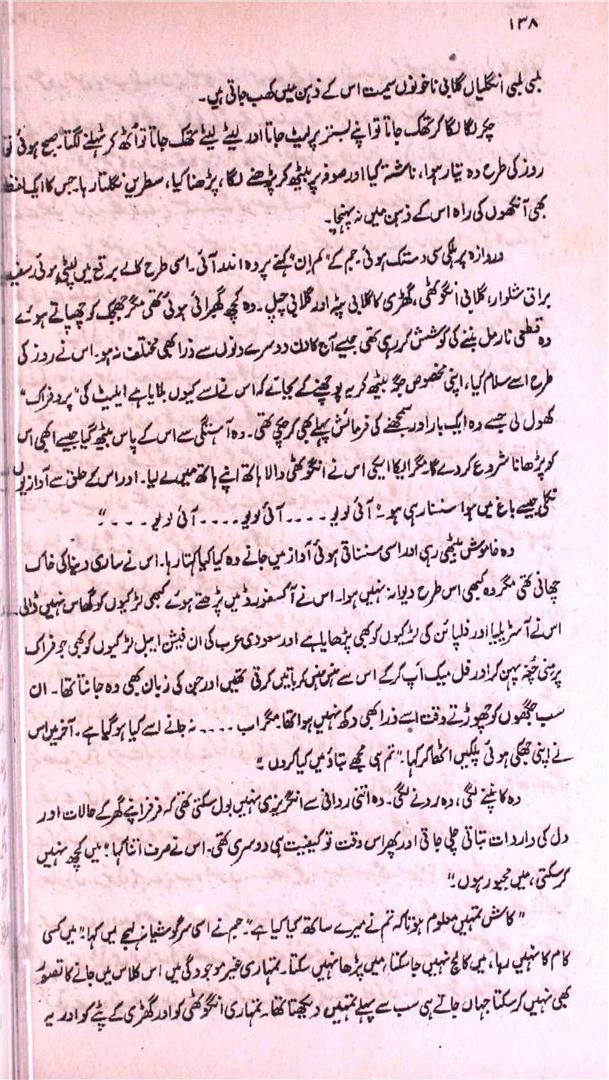 ۱۳۸
لمبی لمبی انگلیاں گلابی ناخونوں سمیت اس کے ذہن میں کھب جاتی ہیں۔
چکر لگا لگا کر تھک جاتا تو اپنے بستر پر لیٹ جاتا اور لیٹے لیٹے تھک جاتا تو اُٹھ کر ٹہلنے لگتا۔ صبح ہوئی تو
روز کی طرح وہ تیار ہوا، ناشتہ کیا اور صوفہ پر بیٹھ کر پڑھنے لگا، پڑھتا گیا، سطریں نگلتا رہا۔ جس کا ایک لفظ
بھی آنکھوں کی راہ اس کے ذہن میں نہ پہنچا۔
دروازہ پر ہلکی سی دستک ہوئی۔ جم کے "کم اِن" کہنے پر وہ اندر آئی۔ اسی طرح کالے برقع میں لپٹی ہوئی سفید
براق شلوار، گلابی انگوٹھی، گھڑی کا گلابی پٹہ اور گلابی چپل۔ وہ کچھ گھبرائی ہوئی تھی مگر جھجک کو چھپاتے ہوئے
وہ قطعی نارمل بننے کی کوشش کر رہی تھی جیسے آج کا دن دوسرے دنوں سے ذرا بھی مختلف نہ ہو۔ اس نے روز کی
طرح اسے سلام کیا، اپنی مخصوص جگہ بیٹھ کر یہ پوچھنے کے بجائے کہ اس نے اسے کیوں بلایا ہے ایلیٹ کی "پروفراک"
کھول لی جسے وہ ایک بار اور سمجھنے کی فرمائش پہلے بھی کر چکی تھی۔ وہ آہستگی سے اس کے پاس بیٹھ گیا جیسے ابھی اس
کو پڑھانا شروع کر دے گا۔ مگر ایکا ایکی اس نے انگوٹھی والا ہاتھ اپنے ہاتھ میں لے لیا۔ اور اس کے حلق سے آواز یوں
نکلی جیسے باغ میں ہوا سنسنا رہی ہو۔ "آئی لو یو ۔۔۔۔ آئی لو یو ۔۔۔۔ آئی لو یو ۔۔۔۔"
وہ خاموش بیٹھی رہی اور اسی سنسناتی ہوئی آواز میں جانے وہ کیا کیا کہتا رہا۔ اس نے ساری دنیا کی خاک
چھانی تھی مگر وہ کبھی اس طرح دیوانہ نہیں ہوا۔ اس نے آکسفورڈ میں پڑھتے ہوئے کبھی لڑکیوں کو گھاس نہیں ڈالی۔
اس نے آسٹریلیا اور فلپائن کی لڑکیوں کو بھی پڑھایا ہے اور سعودی عرب کی ان فیشن ایبل لڑکیوں کو بھی جو فراک
پر منی جُبّہ پہن کر اور فل میک اَپ کر کے اس سے ہنس ہنس کر باتیں کرتی تھیں اور جن کی زبان بھی وہ جانتا تھا۔ ان
سب جگہوں کو چھوڑتے وقت اسے ذرا بھی دکھ نہیں ہوا تھا۔ مگر اب ۔۔۔۔ نہ جانے اسے کیا ہو گیا ہے۔ آخر میں اس
نے اپنی جھکی ہوئی پلکیں اٹھا کر کہا۔ "تم ہی مجھے بتاؤ میں کیا کروں۔"
وہ کانپنے لگی، وہ رونے لگی۔ وہ اتنی روانی سے انگریزی نہیں بول سکتی تھی کہ فرفر اپنے گھر کے حالات اور
دل کی واردات بتاتی چلی جاتی اور پھر اس وقت تو کیفیت ہی دوسری تھی۔ اس نے صرف اتنا کہا "میں کچھ نہیں
کر سکتی، میں مجبور ہوں۔"
"کاش تمہیں معلوم ہوتا کہ تم نے میرے ساتھ کیا کیا ہے۔" جم نے اسی سرگوشیانہ لہجے میں کہا۔ "میں کسی
کام کا نہیں رہا، میں کالج نہیں جا سکتا، میں پڑھا نہیں سکتا۔ تمہاری غیر موجودگی میں اس کلاس میں جانے کا تصور
بھی نہیں کر سکتا جہاں جاتے ہی سب سے پہلے تمہیں دیکھتا تھا۔ تمہاری انگوٹھی کو اور گھڑی کے پٹے کو اور یہ